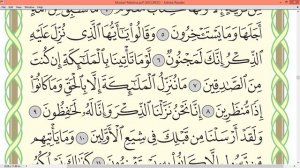 أَجَلَهَا وَمَا يَسْتَـْٔخِرُونَ ٥ وَقَالُوا۟ يَـٰٓأَيُّهَا ٱلَّذِى نُزِّلَ عَلَيْهِ
ٱلذِّكْرُ إِنَّكَ لَمَجْنُونٌ ٦ لَّوْ مَا تَأْتِينَا بِٱلْمَلَـٰٓئِكَةِ إِن كُنتَ
مِنَ ٱلصَّـٰدِقِينَ ٧ مَا نُنَزِّلُ ٱلْمَلَـٰٓئِكَةَ إِلَّا بِٱلْحَقِّ وَمَا كَانُوٓا۟
إِذًا مُّنظَرِينَ ٨ إِنَّا نَحْنُ نَزَّلْنَا ٱلذِّكْرَ وَإِنَّا لَهُۥ لَحَـٰفِظُونَ ٩
وَلَقَدْ أَرْسَلْنَا مِن قَبْلِكَ فِى شِيَعِ ٱلْأَوَّلِينَ ١٠ وَمَا يَأْتِيهِم